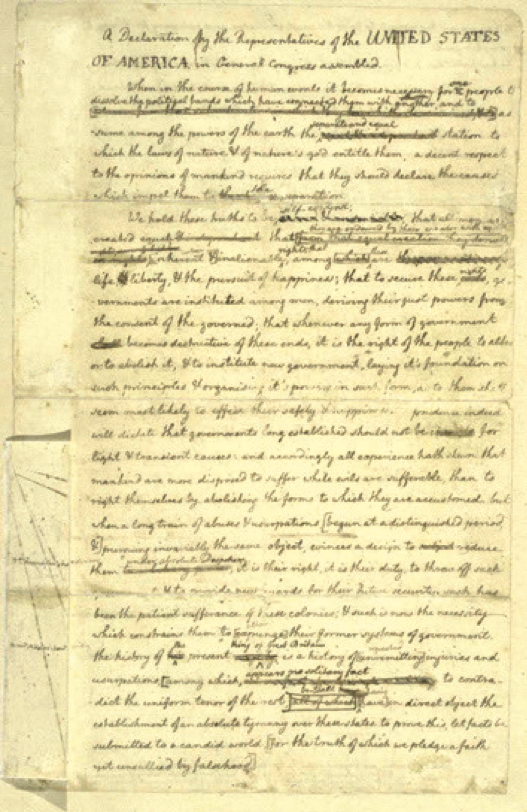 A Declaration by the Representatives of the UNITED STATES
OF AMERICA, in General Congress assembled.
When in the course of human events it becomes necessary for one people to
dissolve the political bands which have connected them with another, and to
as
separate and equal
sume among the powers of the earth the station to
which the laws of nature & of nature's god entitle them, a decent respect
to the opinions of mankind requires that they should declare the causes
which impel them to the separation.
self-evident,
We hold these truths to be that all men are
they are endowed by their creator with
created equal that
rights; that
inherent & inalienable among which are
life & liberty, & the pursuit of happiness; that to secure these rights, go
vernments are instituted among men, deriving their just powers from
the consent of the governed; that whenever any form of government
becomes destructive of these ends, it is the right of the people to alter
or to abolish it, & to institute new government, laying it's foundation on
such principles & organising it's powers in such form, as to them shall
seem most likely to effect their safety & happiness. prudence indeed
will dictate that governments long established should not be changed for
light & transient causes: and accordingly all experience hath shewn that
mankind are more disposed to suffer while evils are sufferable, than to
right themselves by abolishing the forms to which they are accustomed. but
when a long train of abuses & usurpations [begun at a distinguished period
&] pursuing invariably the same object, evinces a design to reduce
under absolute Despotism
them it is their right, it is their duty, to throw off such
& to provide new guards for their future security. such has
been the patient sufferance of these colonies; & such is now the necessity
which constrains them to [expunge] their former systems of government.
the King of Great Britain
the history of present is a history of unremitting injuries and
appears no solitary fact
usurpations [among which, to contra-
but all have
dict the uniform tenor of the rest in direct object the
establishment of an absolute tyranny over these states. to prove this, let facts be
submitted to a candid world [for the truth of which we pledge a faith
yet unsullied by falsehood]